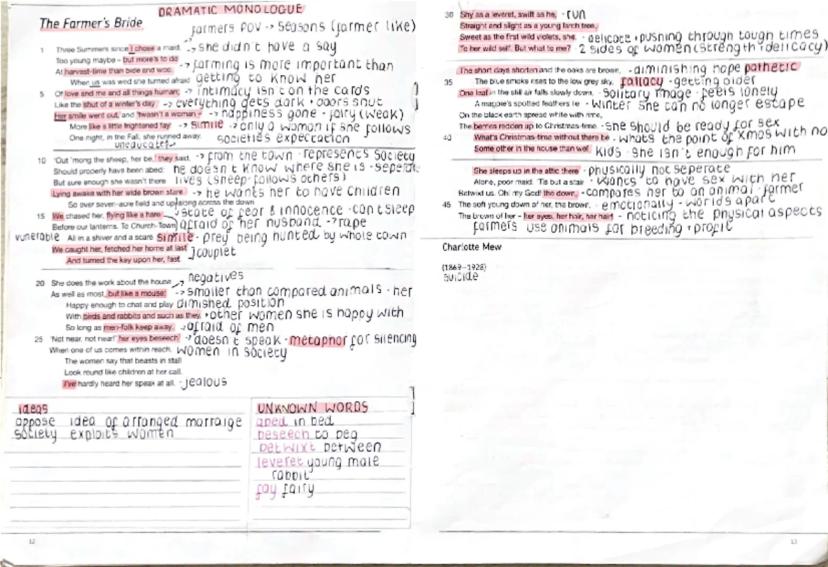 DRAMATIC MONOLOGUE
The Farmer's Bride
farmers POV -> seasons (farmer like)
1 Three Summers since I chose a maid, -> she didn't have a say
Too young maybe – but more's to do -> farming is more important than
At harvest-time than bide and woo. getting to know her
When us was wed she turned afraid
5 Of love and me and all things human; -> intimacy isn't on the cards
Like the shut of a winter's day -> everything gets dark + doors shut
Her smile went out, and 'twasn't a woman – -> happiness gone - fairy (weak)
More like a little frightened fay -> simile -> only a woman if she follows
One night, in the Fall, she runned away. societies expectation
uneducated
10 'Out 'mong the sheep, her be,' they said, -> from the town - represents society
Should properly have been abed; he doesn't know where she is - seperate
But sure enough she wasn't there lives (sheep - follows others)
Lying awake with her wide brown stare. -> he wants her to have children
So over seven-acre field and up-along across the down
15 We chased her, flying like a hare -> state of fear & innocence - can't sleep
Before our lanterns. To Church-Town afraid of her husband -> rape
vunerable All in a shiver and a scare simile - prey being hunted by whole town
We caught her, fetched her home at last ] couplet
And turned the key upon her, fast
20 She does the work about the house -> negatives
As well as most, but like a mouse: -> smaller than compared animals - her
Happy enough to chat and play dimished position
With birds and rabbits and such as they, + other women she is happy with
So long as men-folk keep away. -> afraid of men
25 'Not near, not near!' her eyes beseech -> doesn't speak - metaphor for silencing
When one of us comes within reach. women in society
The women say that beasts in stall
Look round like children at her call.
I've hardly heard her speak at all. - jealous
ideas
oppose idea of arranged marraige
society exploits women
UNKNOWN WORDS
abed in bed
beseech to beg
betwixt between
leveret young male
rabbit
fay fairy
12
30 Shy as a leveret, swift as he, - run
Straight and slight as a young larch tree,
Sweet as the first wild violets, she, - delicate + pushing through tough times
To her wild self. But what to me? - 2 sides of women (strength + delicacy)
The short days shorten and the oaks are brown, - diminishing hope pathetic
35 The blue smoke rises to the low grey sky, fallacy - getting older
One leaf in the still air falls slowly down, - solitary image - feels lonely
A magpie's spotted feathers lie - winter she can no longer escape
On the black earth spread white with rime,
The berries redden up to Christmas-time. - she should be ready for sex
40 What's Christmas-time without there be - whats the point of xmas with no
Some other in the house than we! kids - she isn't enough for him
She sleeps up in the attic there - physically not seperate
Alone, poor maid. 'Tis but a stair - wants to have sex with her
Betwixt us. Oh! my God! the down, - compares her to an animal - farmer
45 The soft young down of her, the brown, - emotionally - worlds apart
The brown of her – her eyes, her hair, her hair! - noticing the physical aspects
farmers use animals for breeding + profit
Charlotte Mew
(1869–1928)
suicide
13